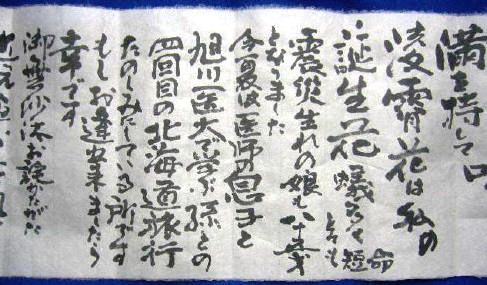 満を持して
凌霄花は私の
誕生花 蟻たちと
とても
短命
震災生れの娘も八十歳
となりました
今夏は医師の息子と
旭川医大で学ぶ孫との
四回目の北海道旅行
たのしみにしている所です
もしお逢い出来ましたら
幸です
御無沙汰お詫びかたがた